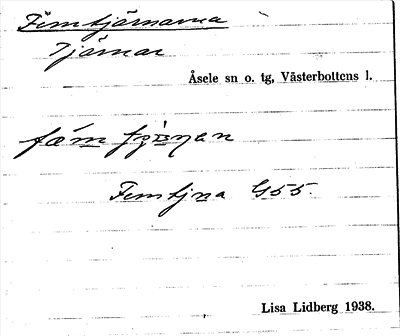 Femtjärnarna
Tjärnar
Åsele sn o. tg, Västerbottens l.
Femtjna G55.
Lisa Lidberg 1938.